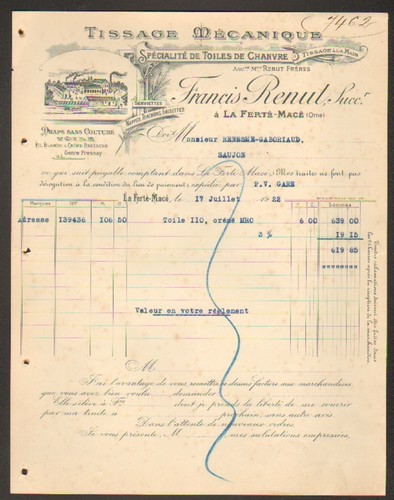 7462
TISSAGE MÉCANIQUE
SPÉCIALITÉ DE TOILES DE CHANVRE
TISSAGE À LA MAIN
ANCne Mon RENUT FRÈRES
Francis Renut, Succr
à LA FERTÉ-MACÉ (Orne)
SERVIETTES
NAPPES, TORCHONS,
DRAPS SANS COUTURE
FIL BLANCHI & CRÈME BRETAGNE
GENRE FRESNAY
Doit Monsieur BENESME-GABORIAUD,
SAUJON
ce qui suit payable comptant dans La Ferté-Macé, Mes traites ne font pas
dérogation à la condition du lieu de paiement, expédié par P.V. GARE
La Ferté-Macé, le 17 Juillet 1922
Marques Nos
Adresse 139436 106 50 Toile 110, crémé MRO 6 00 639 00
3 % 19 15
619 85
Valeur en votre réglement
Toutes réclamations passées
après la réception de la marchandise
M
J'ai l'avantage de vous remettre ci-dessus facture aux marchandises
que vous avez bien voulu demander
Elle s'élève à F dont je prends la liberté de me couvrir
par ma traite à prochain, sans autre avis
Dans l'attente de nouveaux ordres,
Je vous présente, M mes salutations empressées,